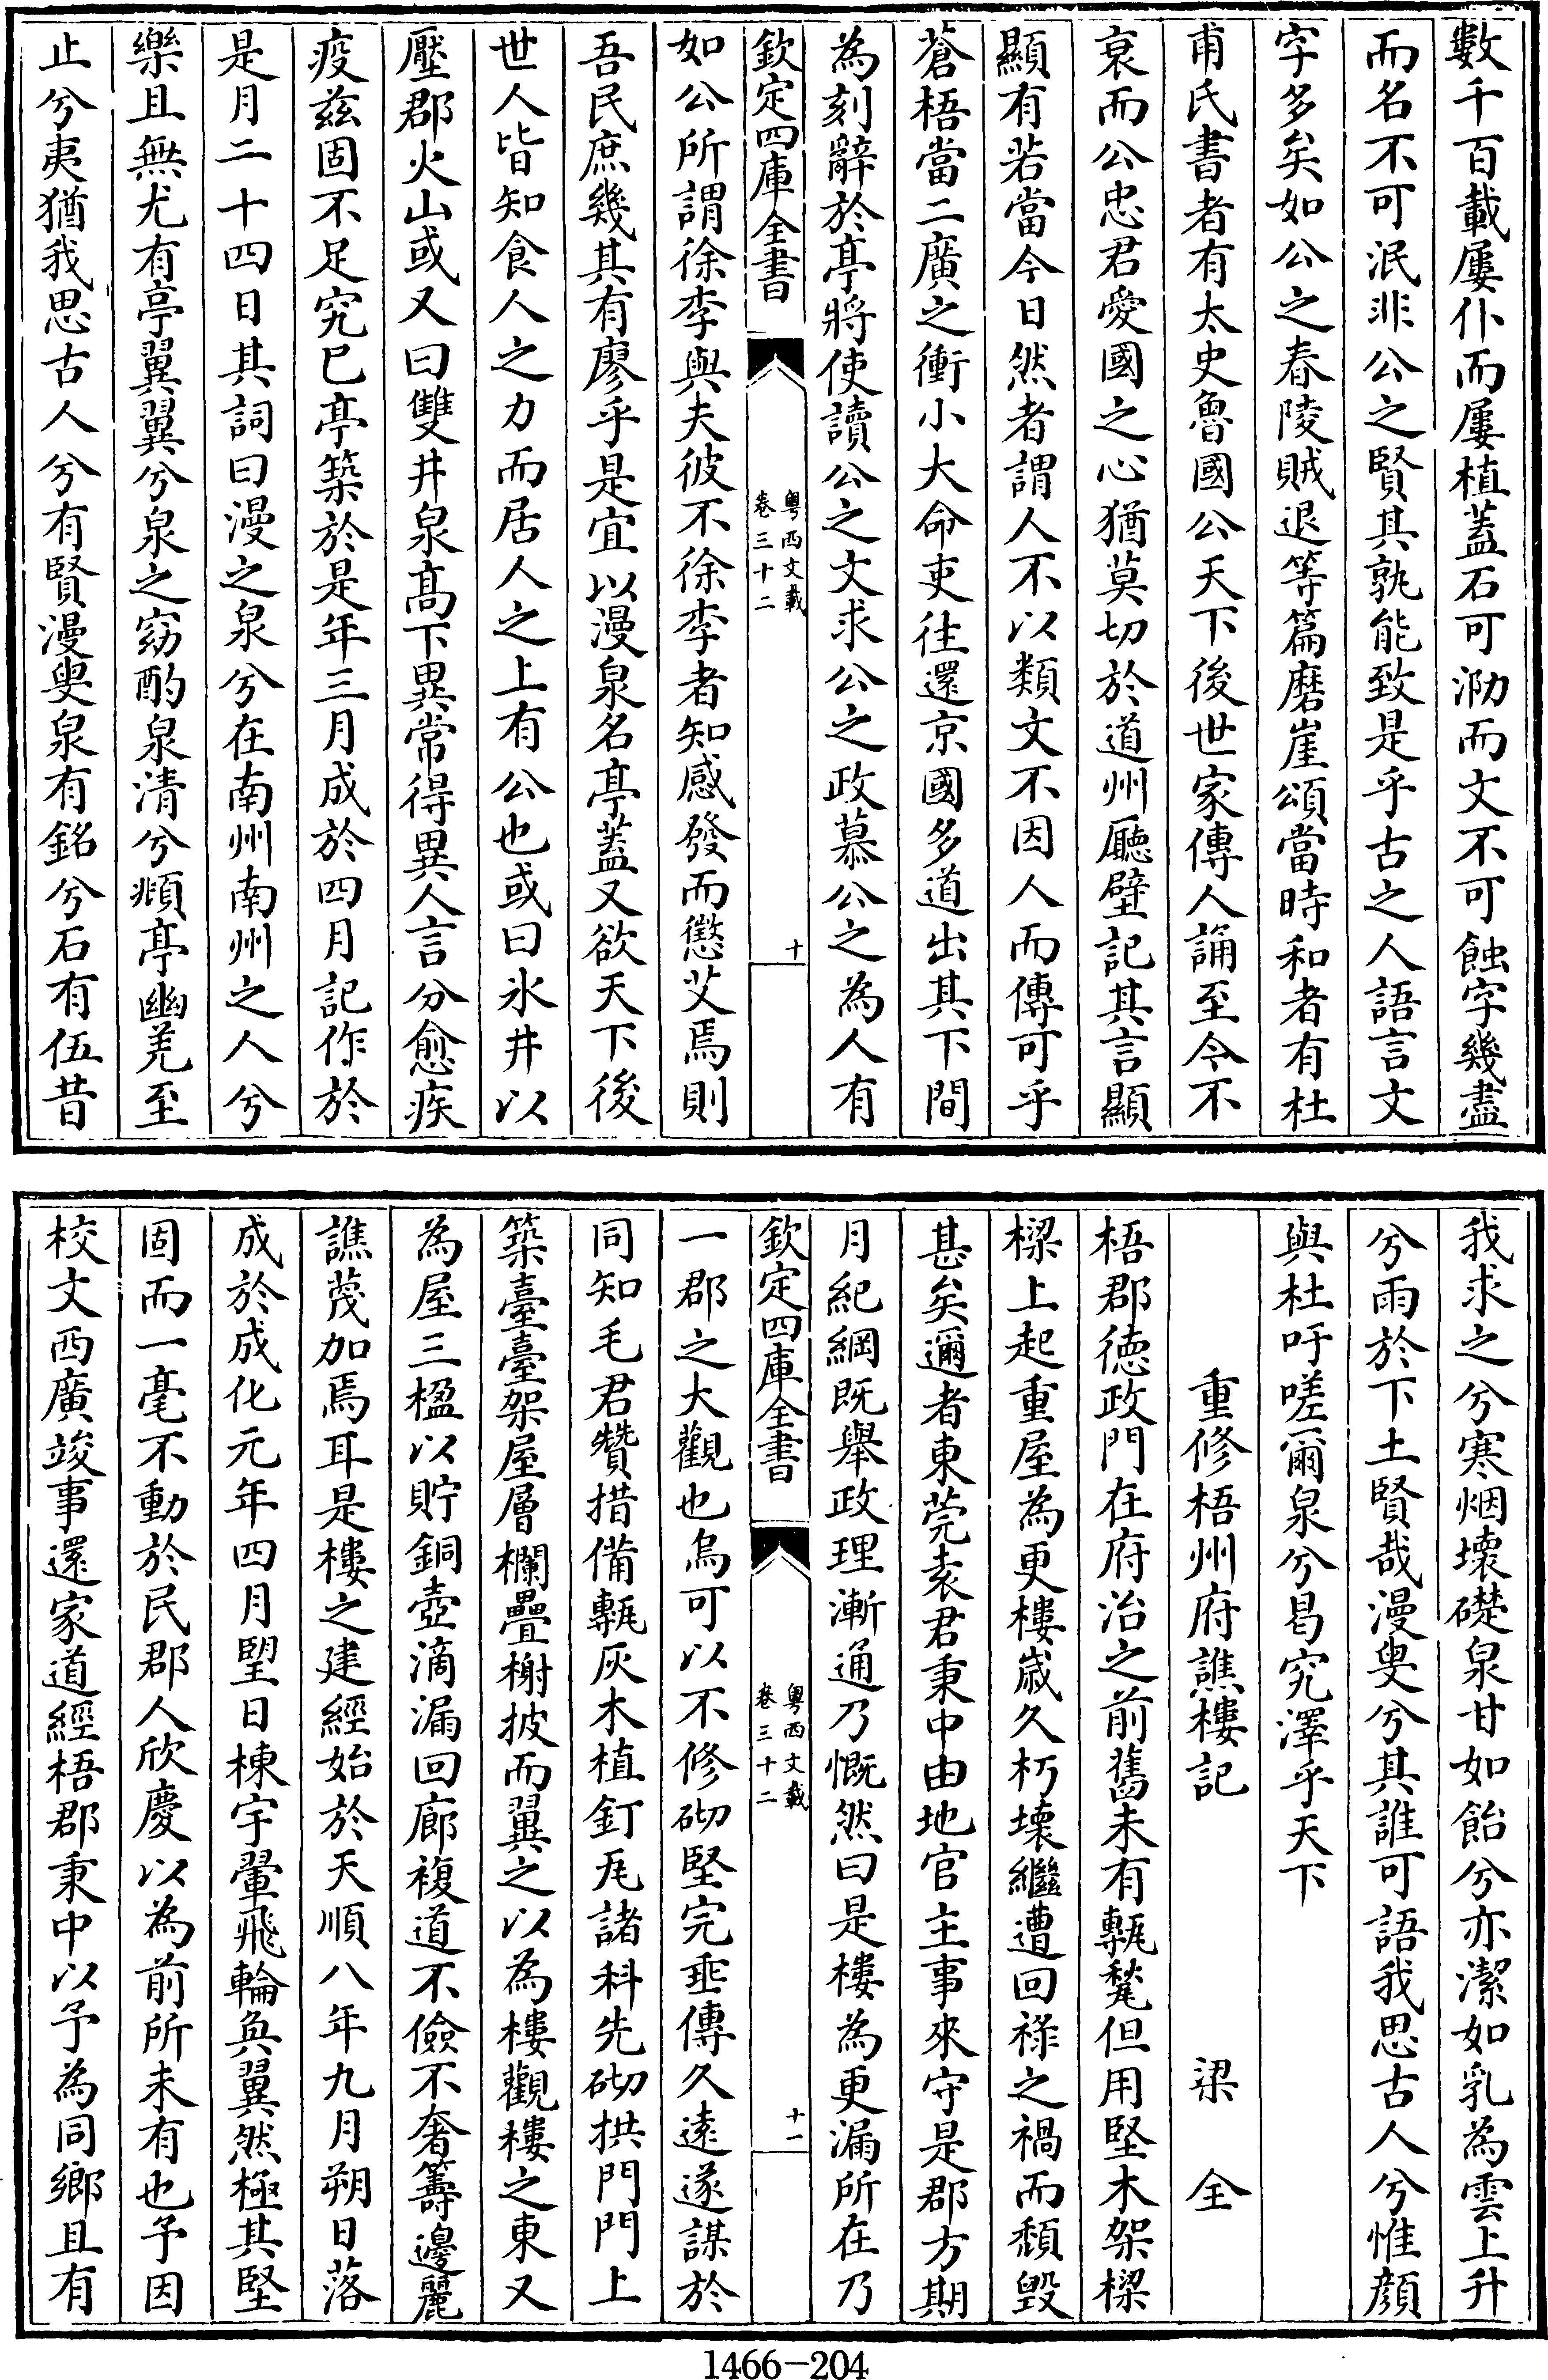 數千百載屢仆而屢植蓋石可泐而文不可蝕字幾盡
而名不可泯非公之賢其孰能致是乎古之人語言文
字多矣如公之舂陵賊退等篇磨崖頌當時和者有杜
甫氏書者有太史魯國公天下後世家傳人誦至今不
衰而公忠君愛國之心猶莫切於道州廳壁記其言顯
顯有若當今日然者謂人不以類文不因人而傳可乎
蒼梧當二廣之衝小大命吏往還京國多道出其下間
為刻辭於亭將使讀公之文求公之政慕公之為人有
欽定四庫全書
粤西文載
卷三十二
十
如公所謂徐李與夫彼不徐李者知感發而懲艾焉則
吾民庶幾其有廖乎是宜以漫泉名亭蓋又欲天下後
世人皆知食人之力而居人之上有公也或曰氷井以
壓郡火山或又曰雙井泉髙下異常得異人言分愈疾
疫兹固不足究已亭築於是年三月成於四月記作於
是月二十四日其詞曰漫之泉兮在南州南州之人兮
樂且無尤有亭翼翼兮泉之窈酌泉清兮頫亭幽羌至
止兮夷猶我思古人兮有賢漫叟泉有銘兮石有伍昔
我求之兮寒烟壞礎泉甘如飴兮亦潔如乳為雲上升
兮雨於下土賢哉漫叟兮其誰可語我思古人兮惟顔
與杜吁嗟爾泉兮曷究澤乎天下
重修梧州府譙樓記
梁全
梧郡徳政門在府治之前舊未有甎甃但用堅木架樑
樑上起重屋為更樓嵗久朽壞繼遭回祿之禍而頽毀
甚矣邇者東莞袁君秉中由地官主事來守是郡方期
月紀綱既舉政理漸通乃慨然曰是樓為更漏所在乃
欽定四庫全書
粤西文載
卷三十二
十一
一郡之大觀也烏可以不修砌堅完垂傳久遠遂謀於
同知毛君贊措備甎灰木植釘瓦諸料先砌拱門門上
築臺臺架屋層欄疊榭披而翼之以為樓觀樓之東又
為屋三楹以貯銅壺滴漏回廊複道不儉不奢籌邊麗
譙蔑加焉耳是樓之建經始於天順八年九月朔日落
成於成化元年四月朢日棟宇翬飛輪奐翼然極其堅
固而一毫不動於民郡人欣慶以為前所未有也予因
校文西廣竣事還家道經梧郡秉中以予為同鄉且有
1466-204